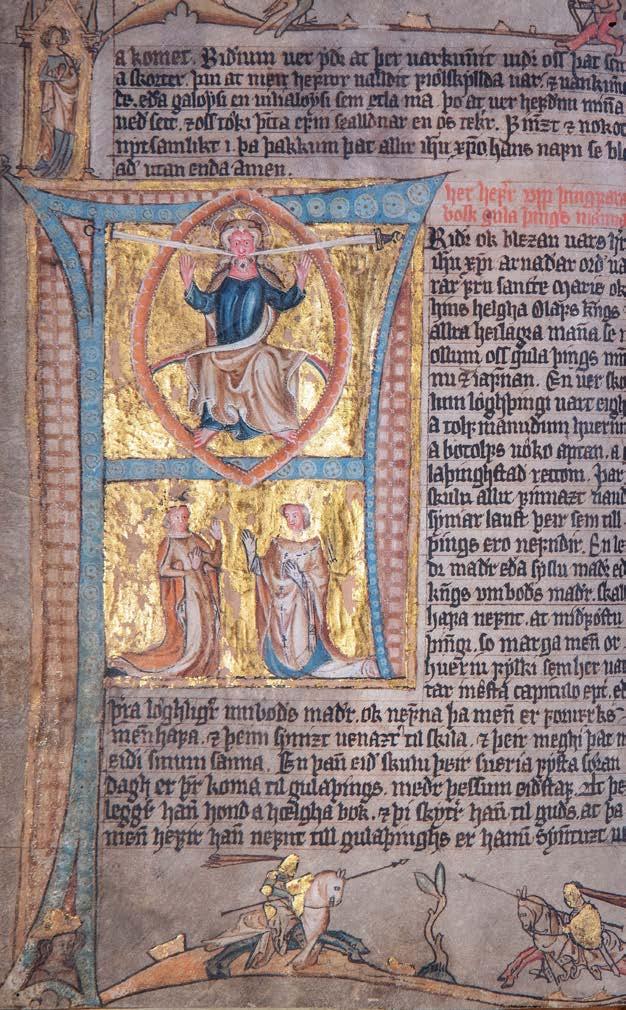 a komet. Bidium uer þess at þer uarkunnit uidr oss þat sem
a skorter. þui at men hefuor ualldit fiolskyllda uar. & uankun
de. eda galoysi en uihaloysi sem etla ma þo at uer hefdim mina
ned sett. & oss toki þita efni sealldnar en os tekr.
nyt samlikt i. þa þakkum þat allir ihu xpo. hans nafn se ble
ad utan enda amen.
her hefr upp þingfara
bolk gula þings manna
Fridr ok blezan uars hr
ihu xpi arnadar ord ua
rar fru sancte Marie ok
hins helgha Olafs kngs
allra heilagra mana se m
ollum oss gula þings mn
nu & iafnan. En uer sko
lum loghþingi uart eigh
a tolf manadum huerium
a botolfs uoko aptan. a
laþinghstad rettom. þar
skulu allir finnazt nand
hymar lauft þeir sem till
þings ero nefndir. En le
dr madr eda syslu madr ed
kngs umbods madr. skall
hafa nefnt. at midfostu
þingi. so marga men or
hueriu fylki sem her uar
tar mesta capitulo epr. ed
fra loghligr umbods madr. ok nefna þa men er fonverks
men hafa. & þeim synizt uenazt til skila. & þeir meghi þat m
eidi sinum sanna. En þan eid skulu þeir sueria fysta
dagh er þr koma til gulaþings. medr þessum eidstaf. At þe
leggr han hond a hælgha bok. & þi skytr han til guds. at þa
men hefir han nefnt till gulaþinghs er hanum syntizt u